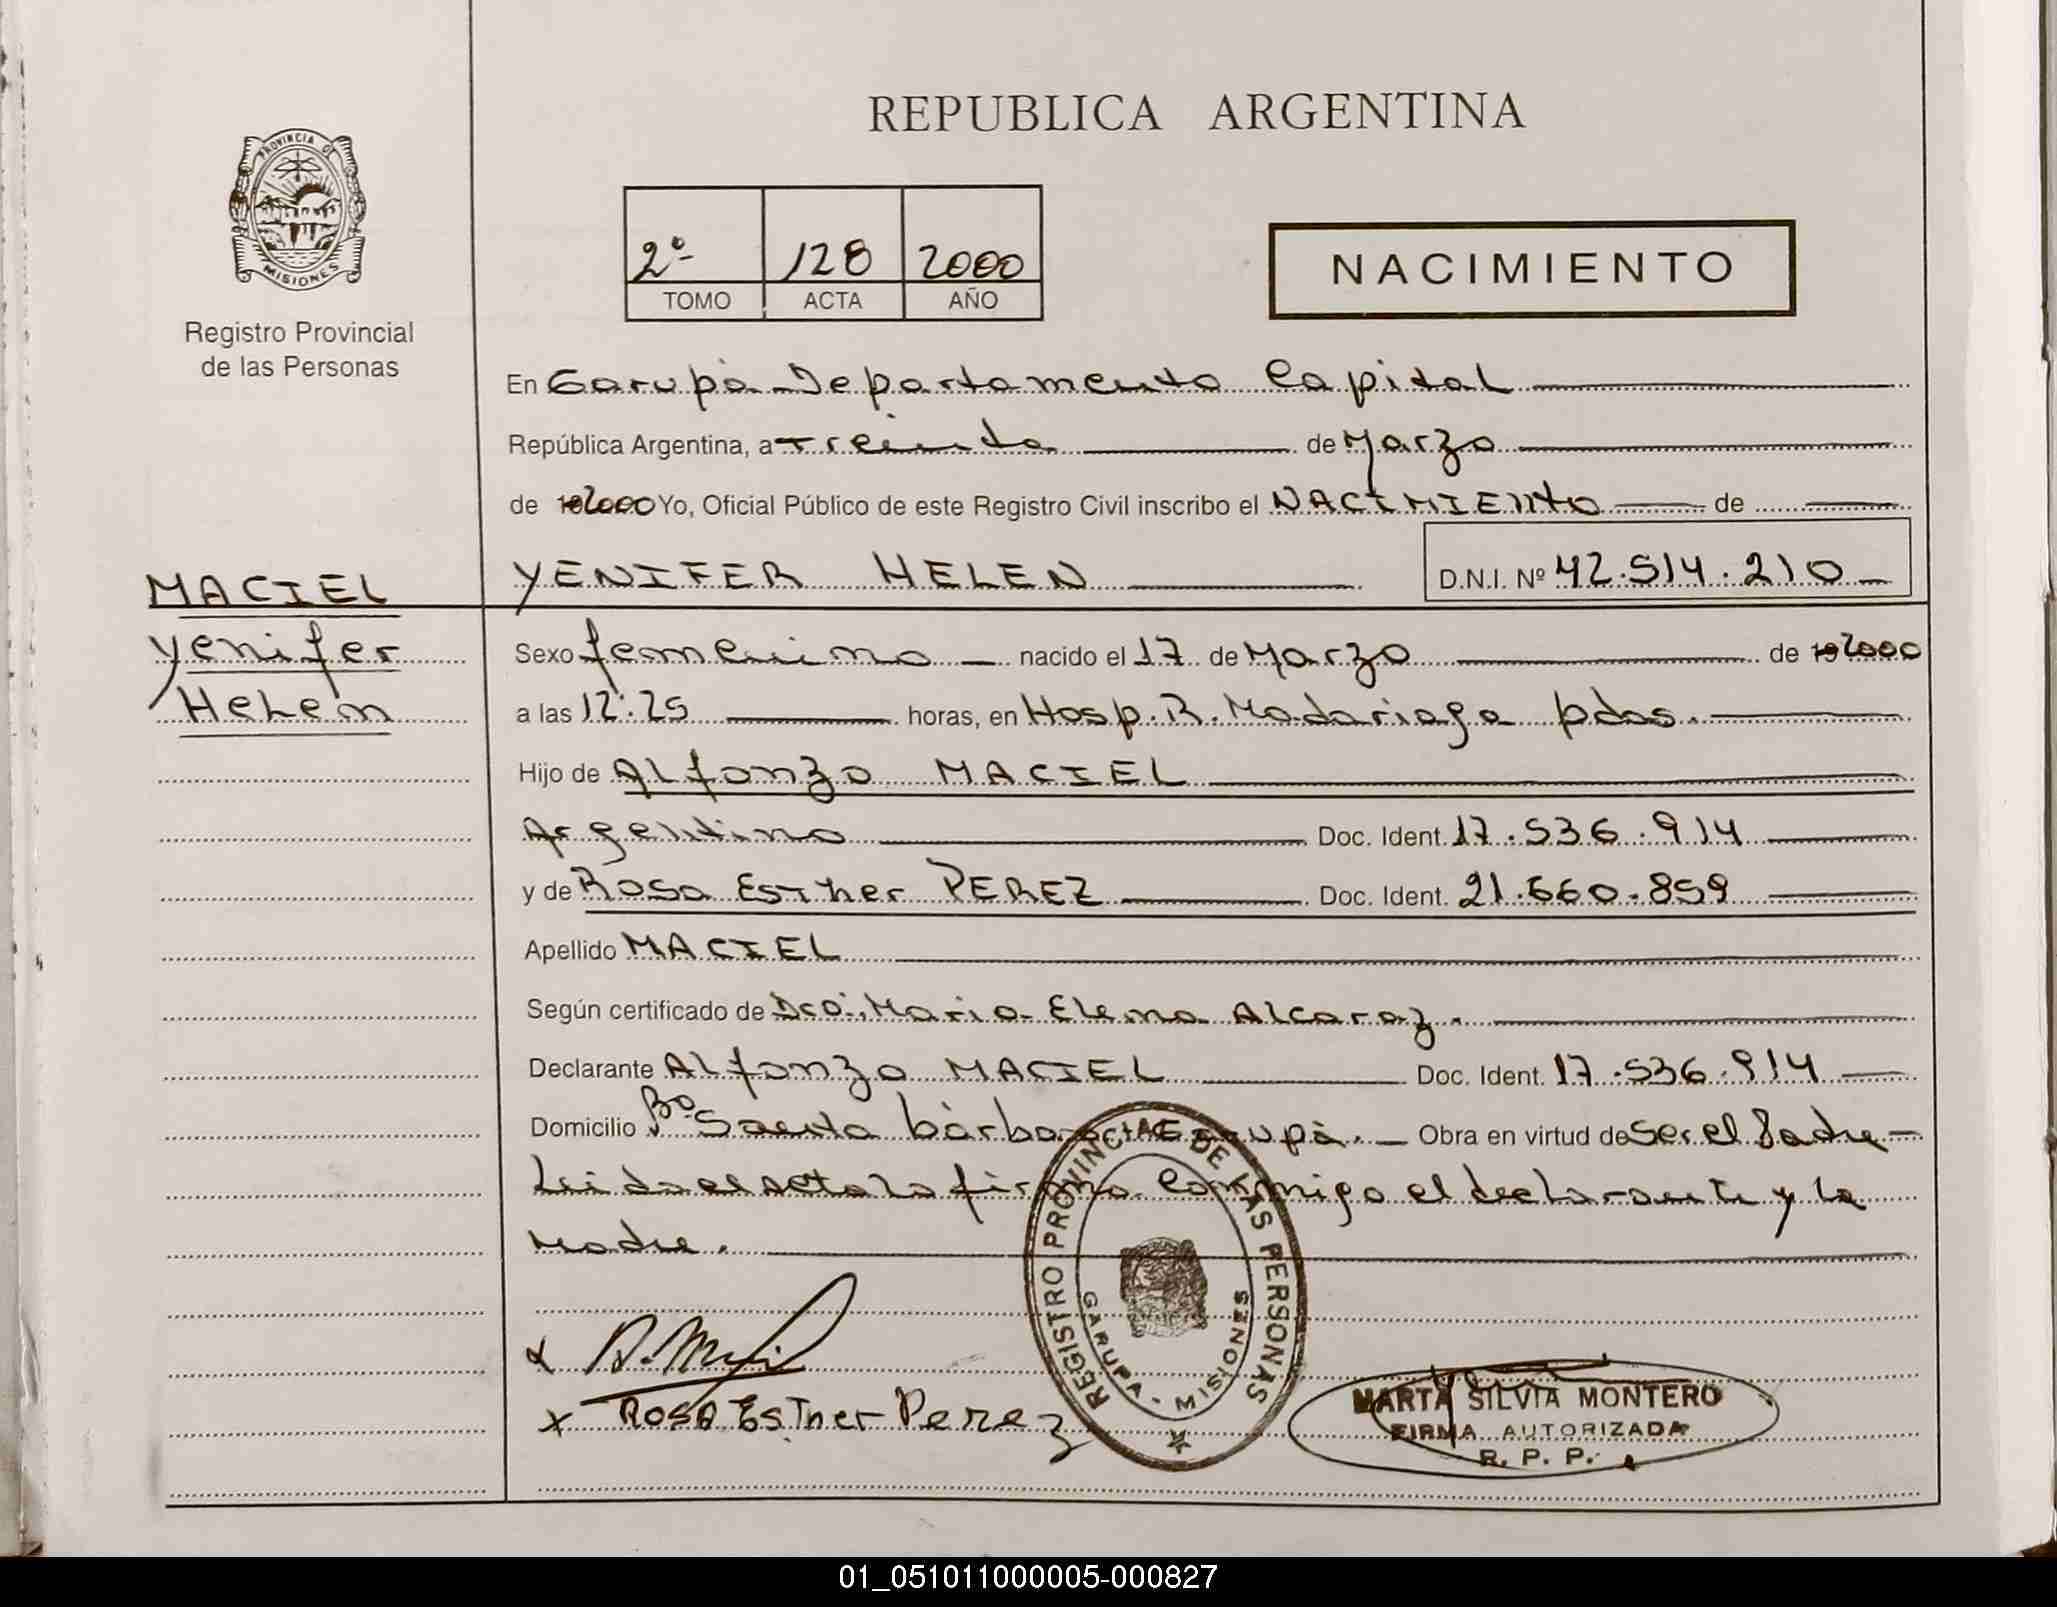 REPUBLICA ARGENTINA
PROVINCIA DE
MISIONES
Registro Provincial
de las Personas
2º 128 2000
TOMO ACTA AÑO
NACIMIENTO
En Garupá Departamento Capital
República Argentina, a treinta de Marzo
de 19 2000 Yo, Oficial Público de este Registro Civil inscribo el NACIMIENTO de
YENIFER HELEN D.N.I. Nº 42.514.210
MACIEL
Yenifer
Helen
Sexo femenino nacido el 17 de Marzo de 19 2000
a las 12:25 horas, en Hosp. R. Madariaga pdas.
Hijo de Alfonzo MACIEL
Argentino Doc. Ident. 17.536.914
y de Rosa Esther PEREZ Doc. Ident. 21.660.859
Apellido MACIEL
Según certificado de Dra. Maria Elena Alcaraz.
Declarante Alfonzo MACIEL Doc. Ident. 17.536.914
Domicilio Bº Santa bárbara Garupá. Obra en virtud de Ser el Padre
Leida el acta la firma conmigo el declarante y la
Madre.
REGISTRO PROVINCIAL DE LAS PERSONAS
GARUPA - MISIONES
x
x Rosa Esther Perez
MARTA SILVIA MONTERO
FIRMA AUTORIZADA
R. P. P.
01_051011000005-000827